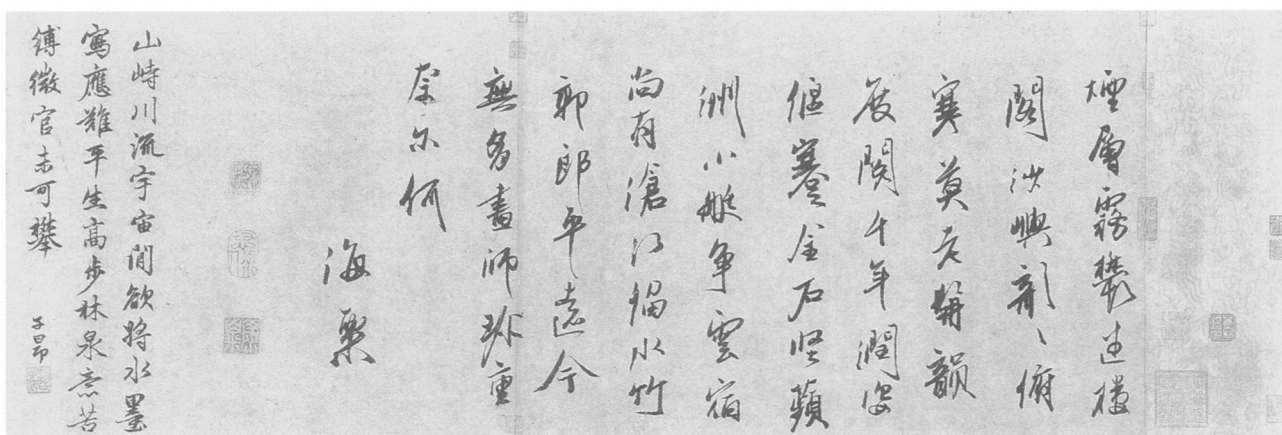 煙層霧疊迷樓
閣沙嶼彭〻俯
寥莫老韻
展閱千年潤
偃蹇金石堅蘋
洲小艇爭雲宿
尚有滄江水竹
郭郎平遠今
無多畫師珍重
奈尔何
海粟
山峙川流宇宙間欲將水墨
寫應難平生高步林泉意苦
縛微官未可攀
子昂